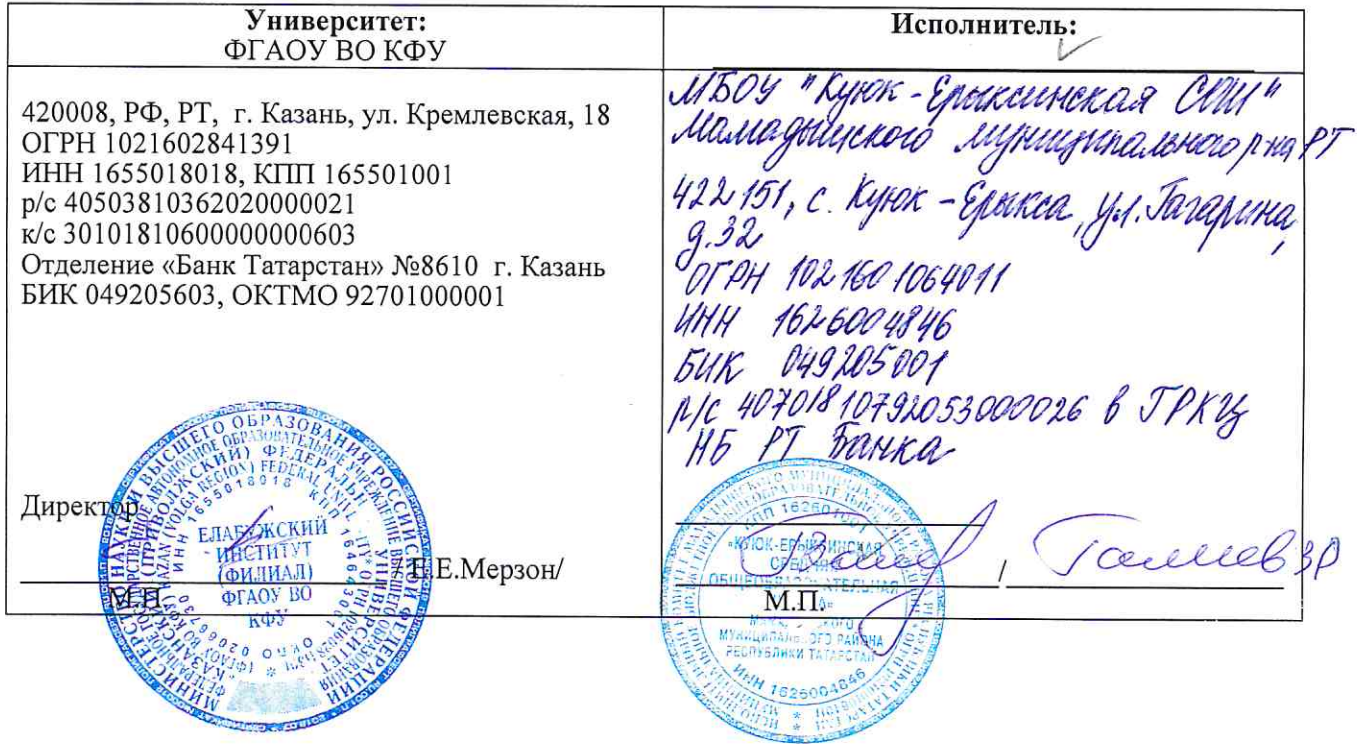 Университет:
ФГАОУ ВО КФУ
420008, РФ, РТ, г. Казань, ул. Кремлевская, 18
ОГРН 1021602841391
ИНН 1655018018, КПП 165501001
р/с 40503810362020000021
к/с 30101810600000000603
Отделение «Банк Татарстан» №8610 г. Казань
БИК 049205603, ОКТМО 92701000001
Директор
/Е.Е.Мерзон/
М.П.
ЕЛАБУЖСКИЙ
ИНСТИТУТ
(ФИЛИАЛ)
ФГАОУ ВО
КФУ
Исполнитель:
МБОУ "Куюк-Ерыксинская СОШ"
Мамадышского муниципального р-на РТ
422151, с. Куюк-Ерыкса, ул. Гагарина,
д. 32
ОГРН 1021601064011
ИНН 1626004846
БИК 049205001
р/с 40701810792053000026 в ГРКЦ
НБ РТ Банка
/ Галиев ЗР
М.П.
«КУЮК-ЕРЫКСИНСКАЯ
СРЕДНЯЯ
ОБЩЕОБРАЗОВАТЕЛЬНАЯ
МУНИЦИПАЛЬНОГО РАЙОНА
РЕСПУБЛИКИ ТАТАРСТАН
ИНН 1626004846